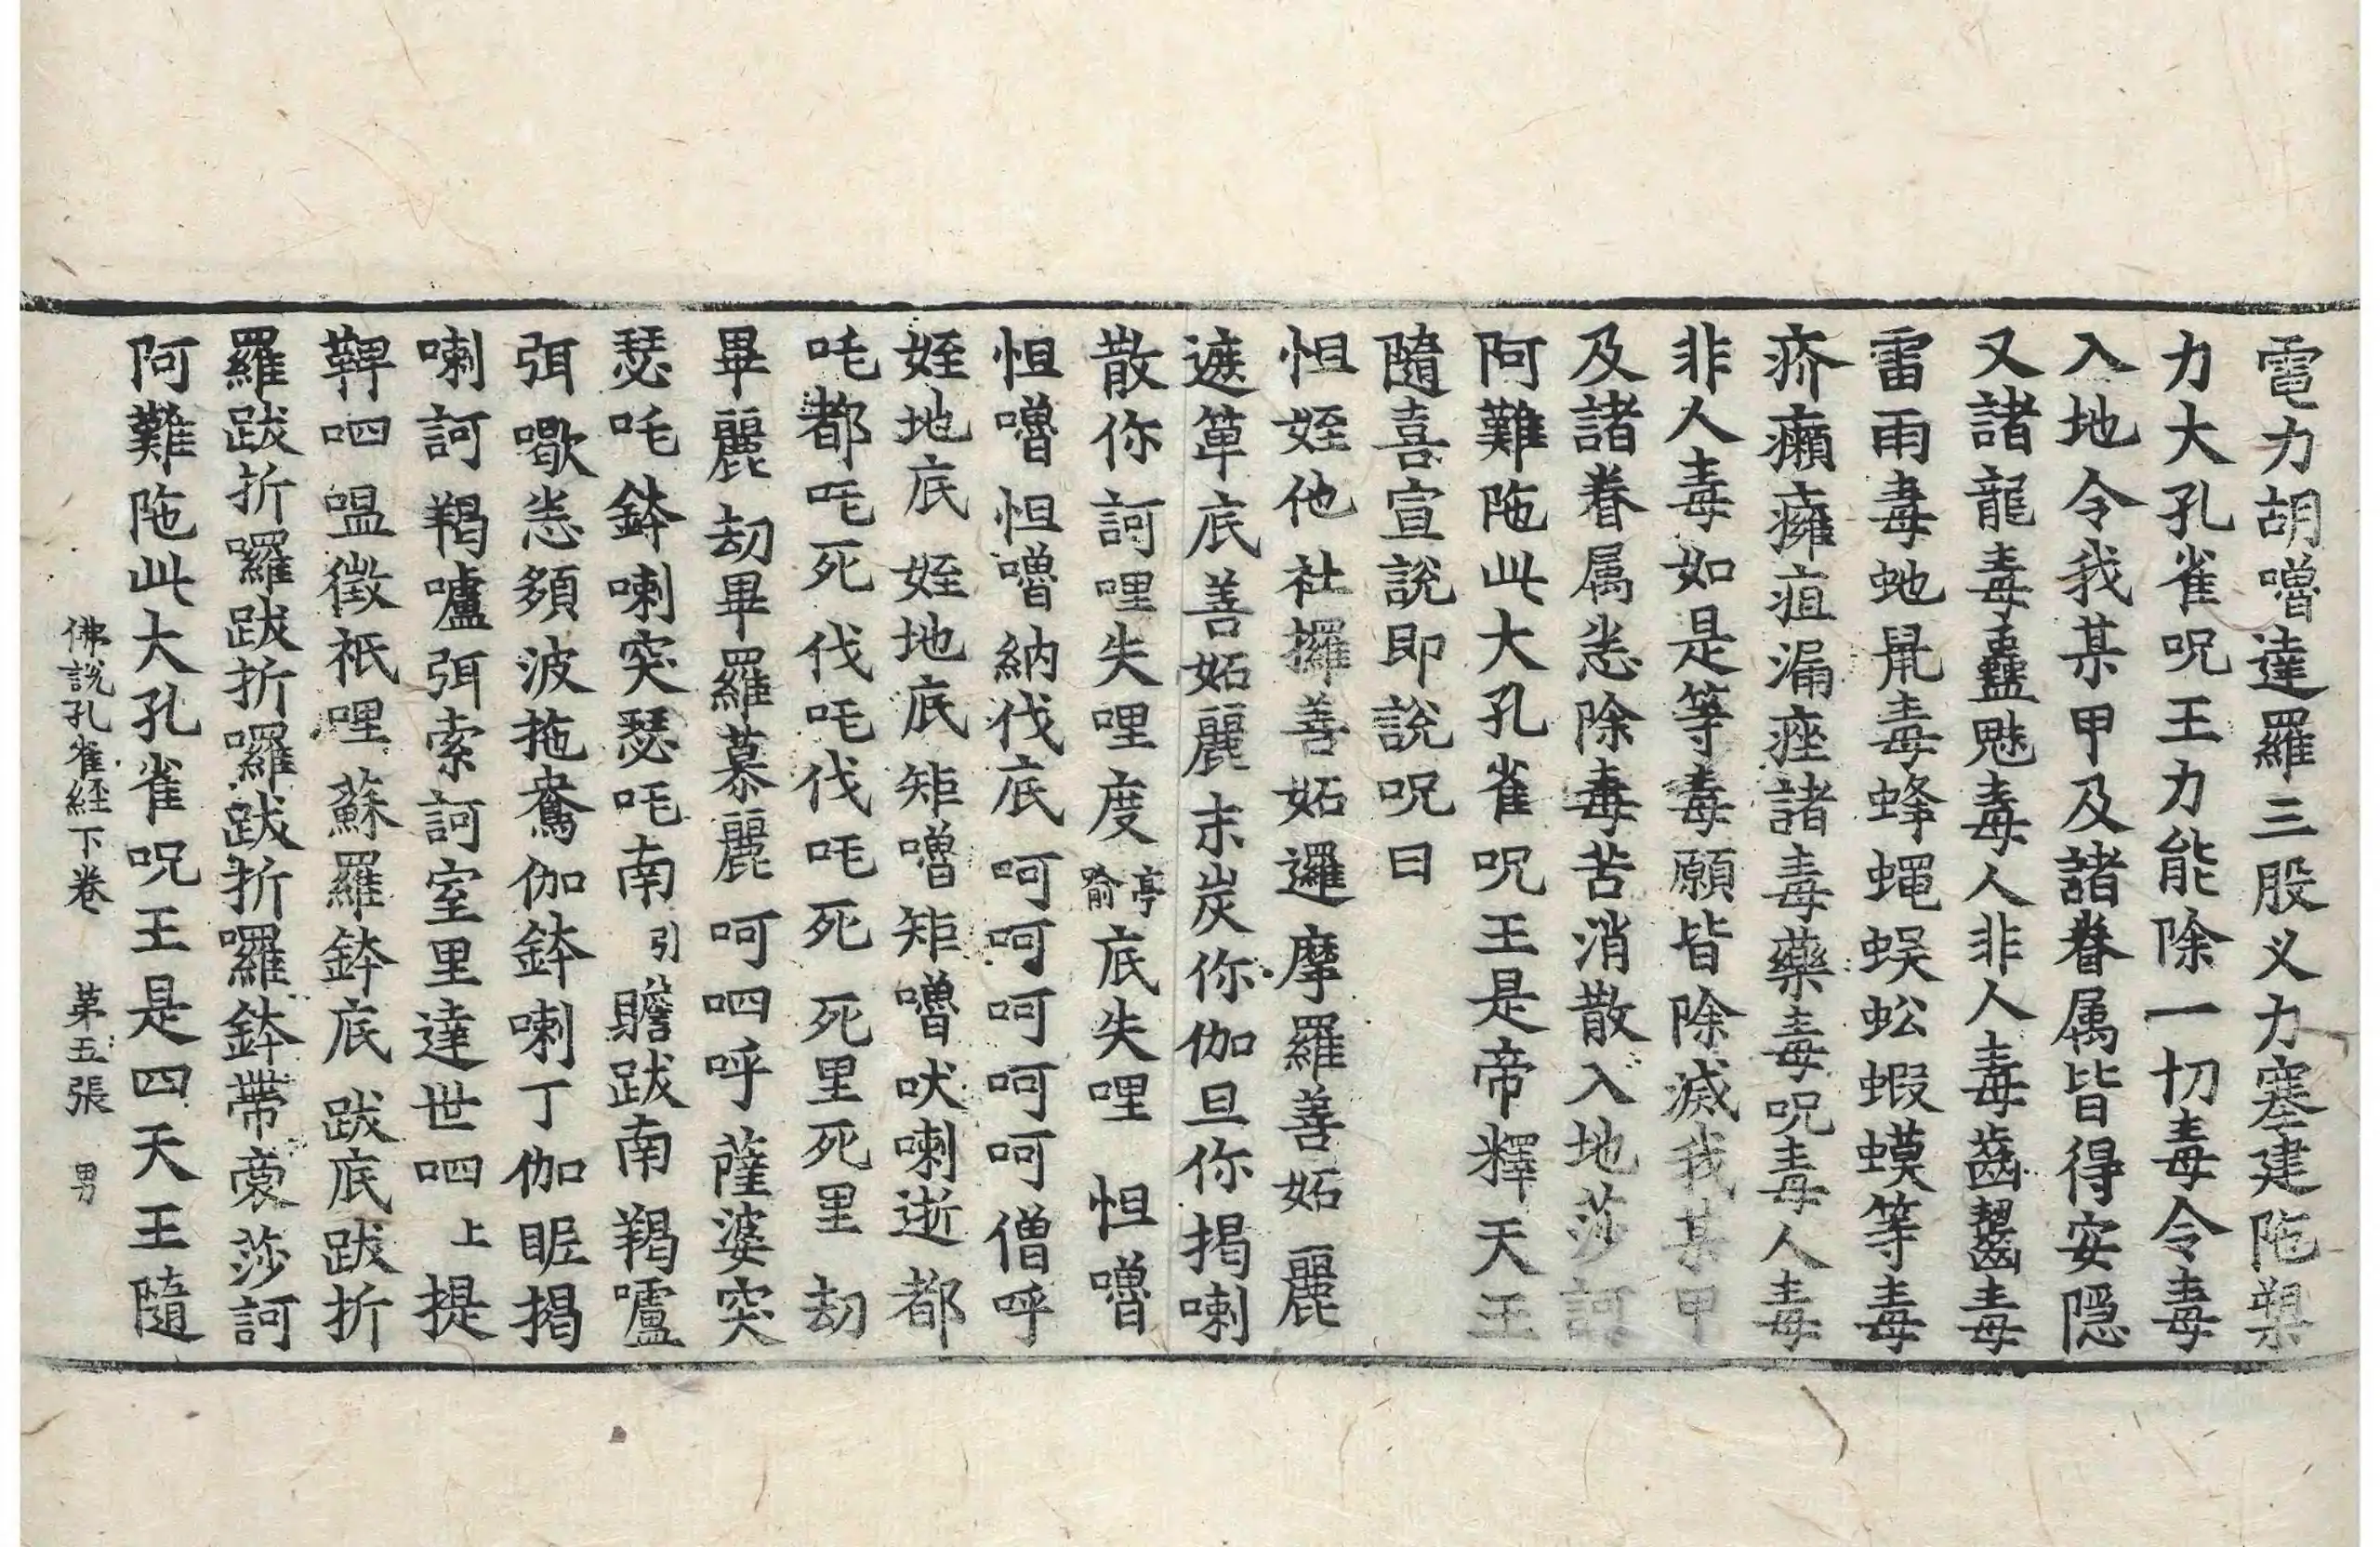 電力胡嚕達羅三股义力塞建陁槊
力大孔雀呪王力能除一切毒令毒
入地令我某甲及諸眷属皆得安隱
又諸龍毒蠱魅毒人非人毒齒齧毒
雷雨毒虵鼠毒蜂蠅蜈蚣蝦蟆等毒
疥癩癰疽漏痤諸毒藥毒呪毒人毒
非人毒如是等毒願皆除滅我某甲
及諸眷属悉除毒苦消散入地莎訶
阿難陁此大孔雀呪王是帝釋天王
隨喜宣說即說呪曰
怛姪他社攞善妬邏摩羅善妬麗
遮箄底善妬麗末炭你伽旦你揭喇
散你訶哩失哩度亭喻底失哩怛嚕
怛嚕怛嚕納伐底呵呵呵呵呵僧呼
姪地底姪地底矩嚕矩嚕吠喇逝都
吒都吒死伐吒伐吒死死里死里劫
畢麗劫畢羅慕麗呵呬呼薩婆突
瑟吒鉢喇突瑟吒南引贍跋南羯嚧
弭歇悉頞波拖鴦伽鉢喇丁伽昵揭
喇訶羯嚧弭索訶室里達世呬上提
鞞呬嗢徵祇哩蘇羅鉢底跋底跋折
羅跋折囉跋折囉跋折囉鉢帶裔莎訶
阿難陁此大孔雀呪王是四天王隨
佛說孔雀経下卷 苐五張 男